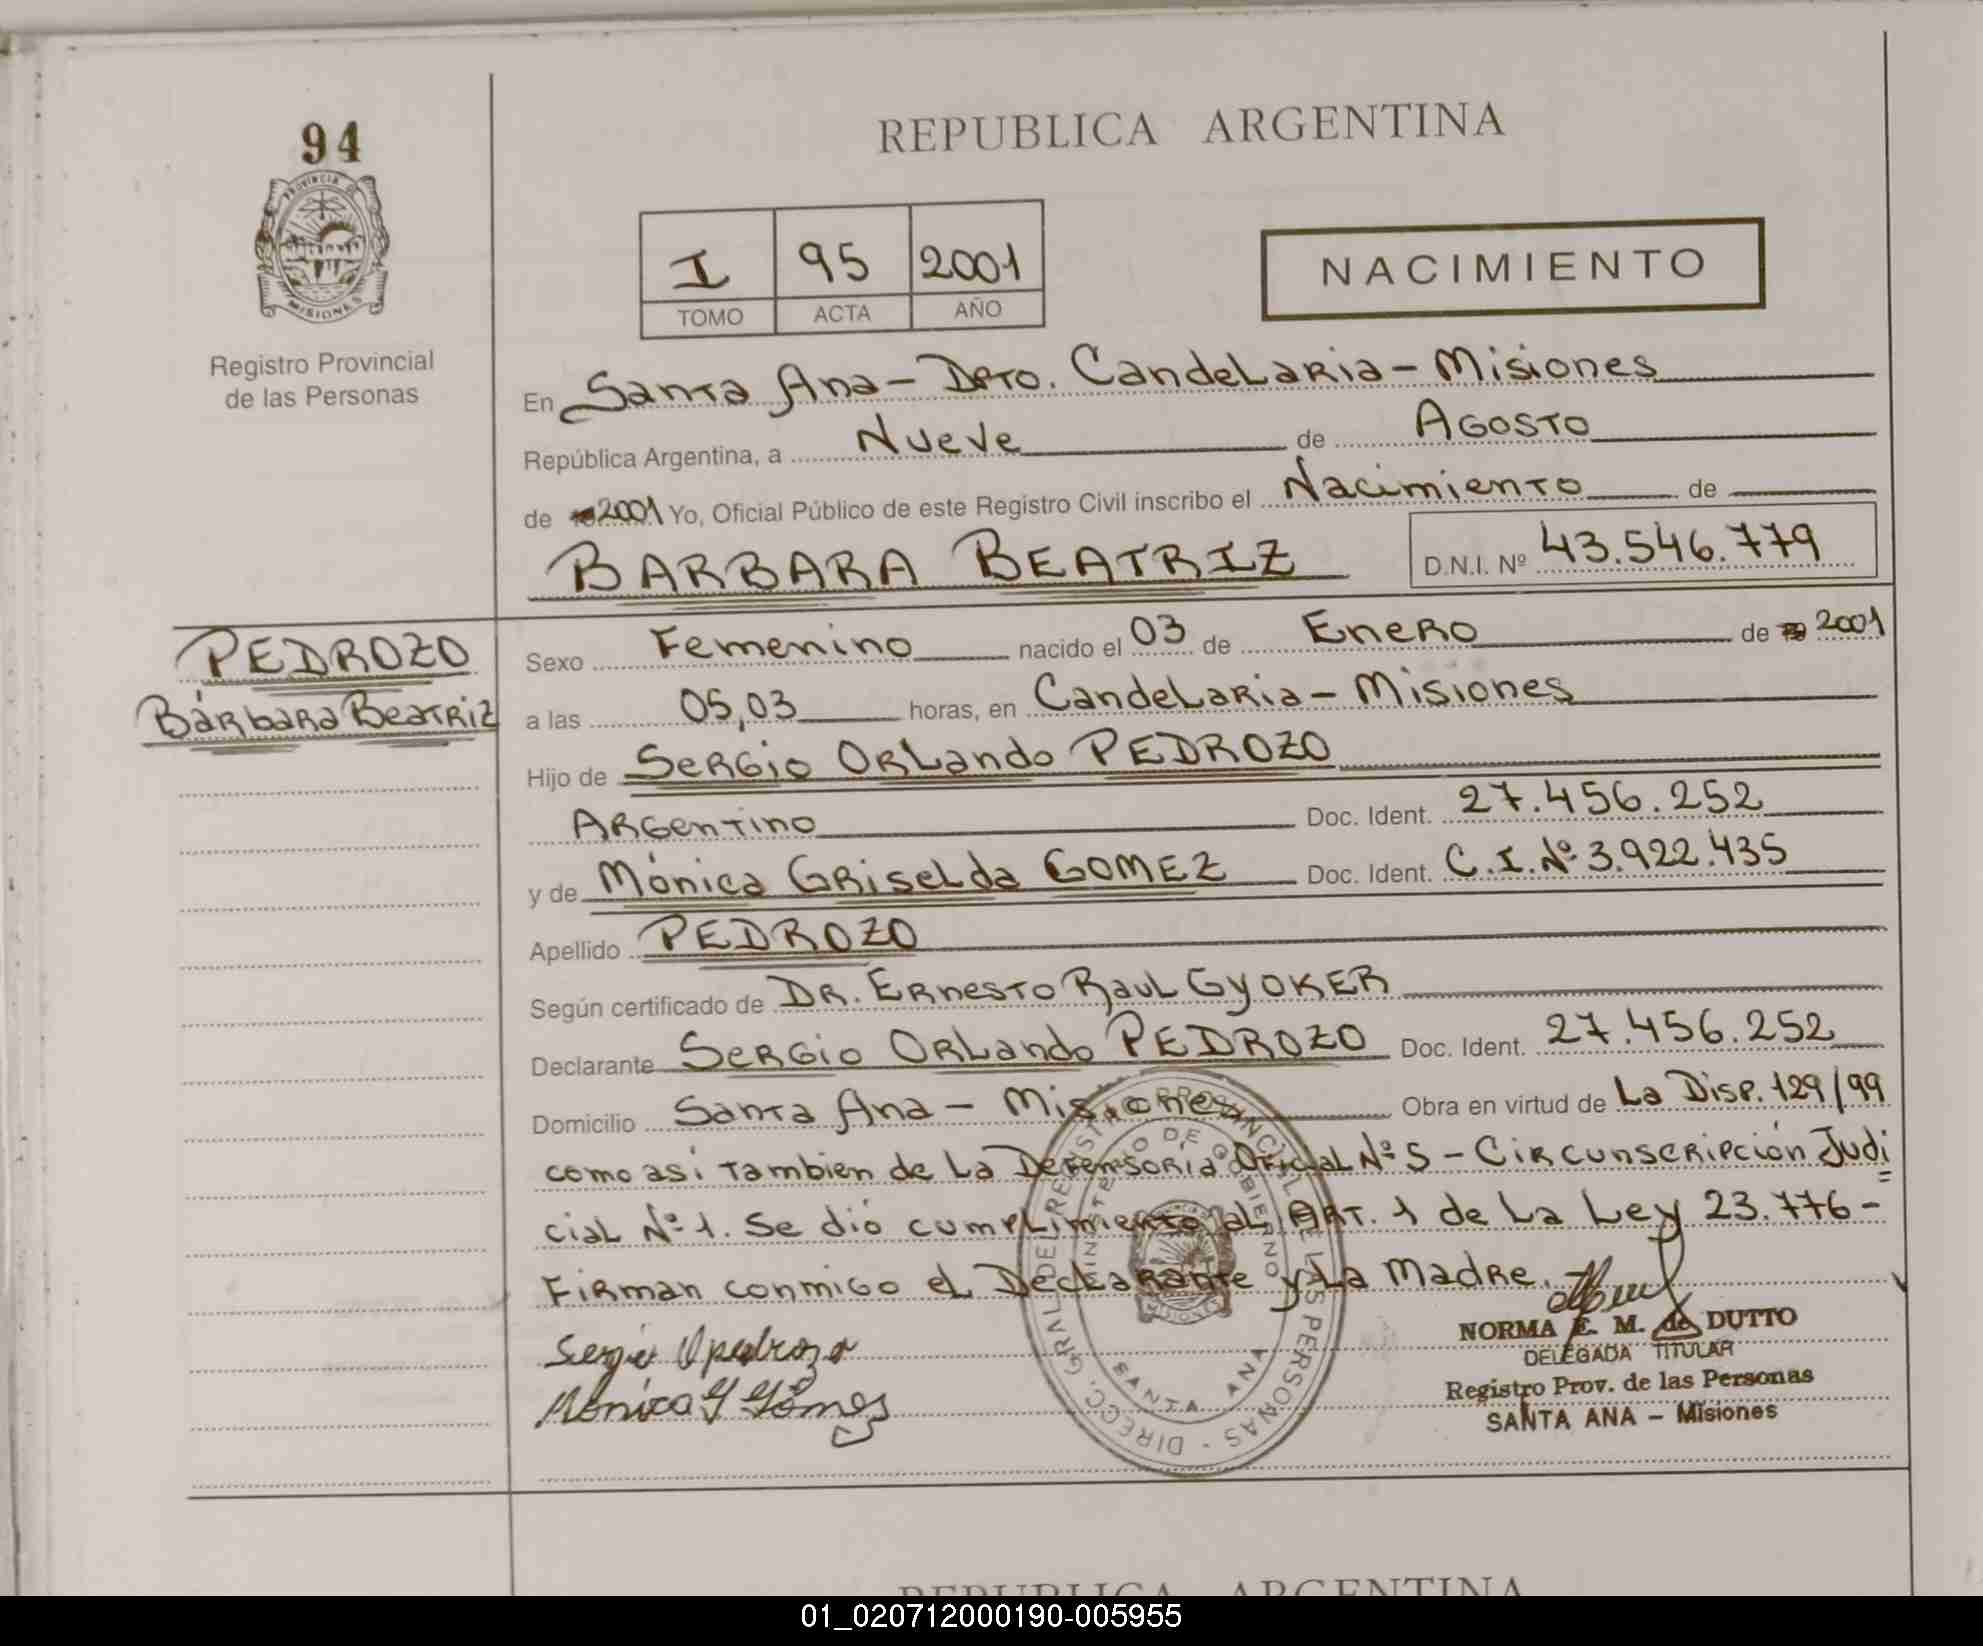 94
PROVINCIA DE
MISIONES
Registro Provincial
de las Personas
REPUBLICA ARGENTINA
I 95 2001
TOMO ACTA AÑO
NACIMIENTO
En Santa Ana - Dpto. Candelaria - Misiones
República Argentina, a Nueve de Agosto
de 2001 Yo, Oficial Público de este Registro Civil inscribo el Nacimiento de
BARBARA BEATRIZ D.N.I. Nº 43.546.779
PEDROZO
Bárbara Beatriz
Sexo Femenino nacido el 03 de Enero de 2001
a las 05,03 horas, en Candelaria - Misiones
Hijo de Sergio Orlando PEDROZO
Argentino Doc. Ident. 27.456.252
y de Mónica Griselda GOMEZ Doc. Ident. C.I.Nº 3.922.435
Apellido PEDROZO
Según certificado de DR. Ernesto Raul GYOKER
Declarante Sergio Orlando PEDROZO Doc. Ident. 27.456.252
Domicilio Santa Ana - Misiones Obra en virtud de La Disp. 129/99
como así tambien de la Defensoría Oficial Nº 5 - Circunscripción Judi
cial Nº 1. Se dió cumplimiento al ART. 1 de la Ley 23.776 -
Firman conmigo el Declarante y la Madre.
Sergio O pedrozo
Mónica G Gómez
NORMA E. M. de DUTTO
DELEGADA TITULAR
Registro Prov. de las Personas
SANTA ANA - Misiones
DIRECC. GRAL. DEL REGISTRO PROVINCIAL DE LAS PERSONAS
MINISTERIO DE GOBIERNO
SANTA ANA
MISIONES
REPUBLICA ARGENTINA
01_020712000190-005955